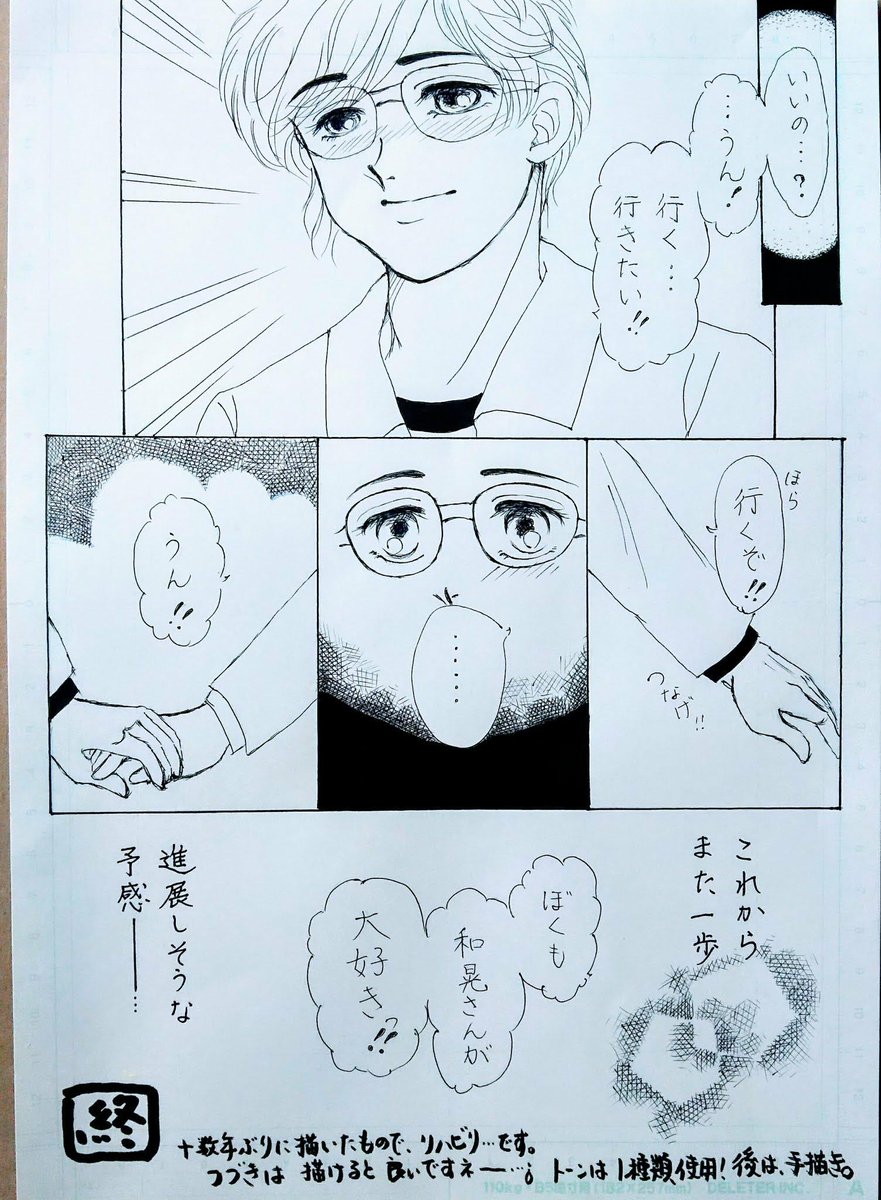 いいの…?
…うん!
行く…
行きたい!!
ほら
行くぞ!!
つなげ!!
……
うん!!
これから
また一歩
ぼくも
和晃さんが
大好きっ!!
進展しそうな
予感――…
終
十数年ぶりに描いたもので、リハビリ…です。
つづきは 描けると 良いですネー…。 トーンは1種類使用!後は、手描き。
110kg・B5
(182×257mm) DELETER INC. A